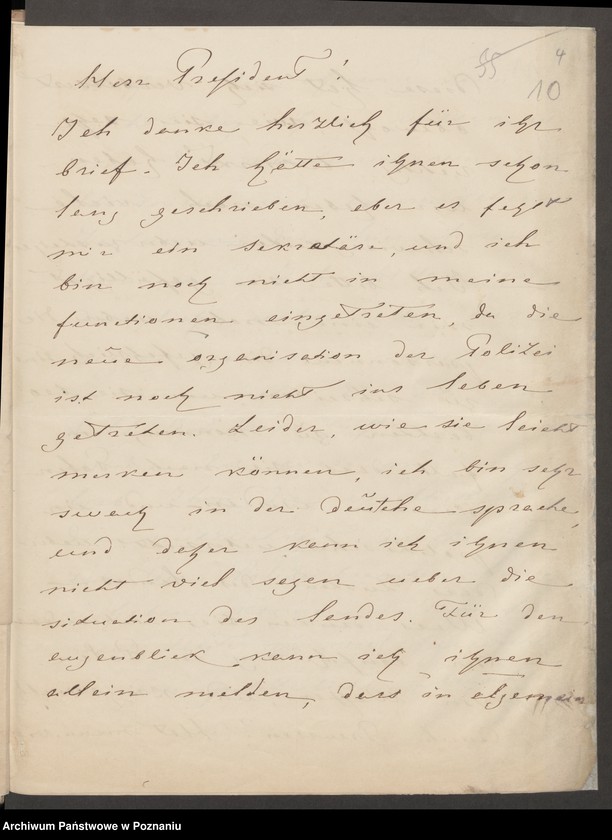 4
10
Herr President!
Ich danke herzlich für ihr
brief. Ich hätte ihnen schon
lang geschrieben, aber es fehlt
mir ein sekretäre, und ich
bin noch nicht in meine
functionen eingetreten, da die
neue organisation der Polizei
ist noch nicht ins leben
getreten. Leider, wie sie leicht
merken können, ich bin sehr
swach in der deütche sprache,
und daher kann ich ihnen
nicht viel sagen ueber die
situation des landes. Für den
augenblick kann ich ihnen
allein melden, dass in algemein
Archiwum Państwowe w Poznaniu